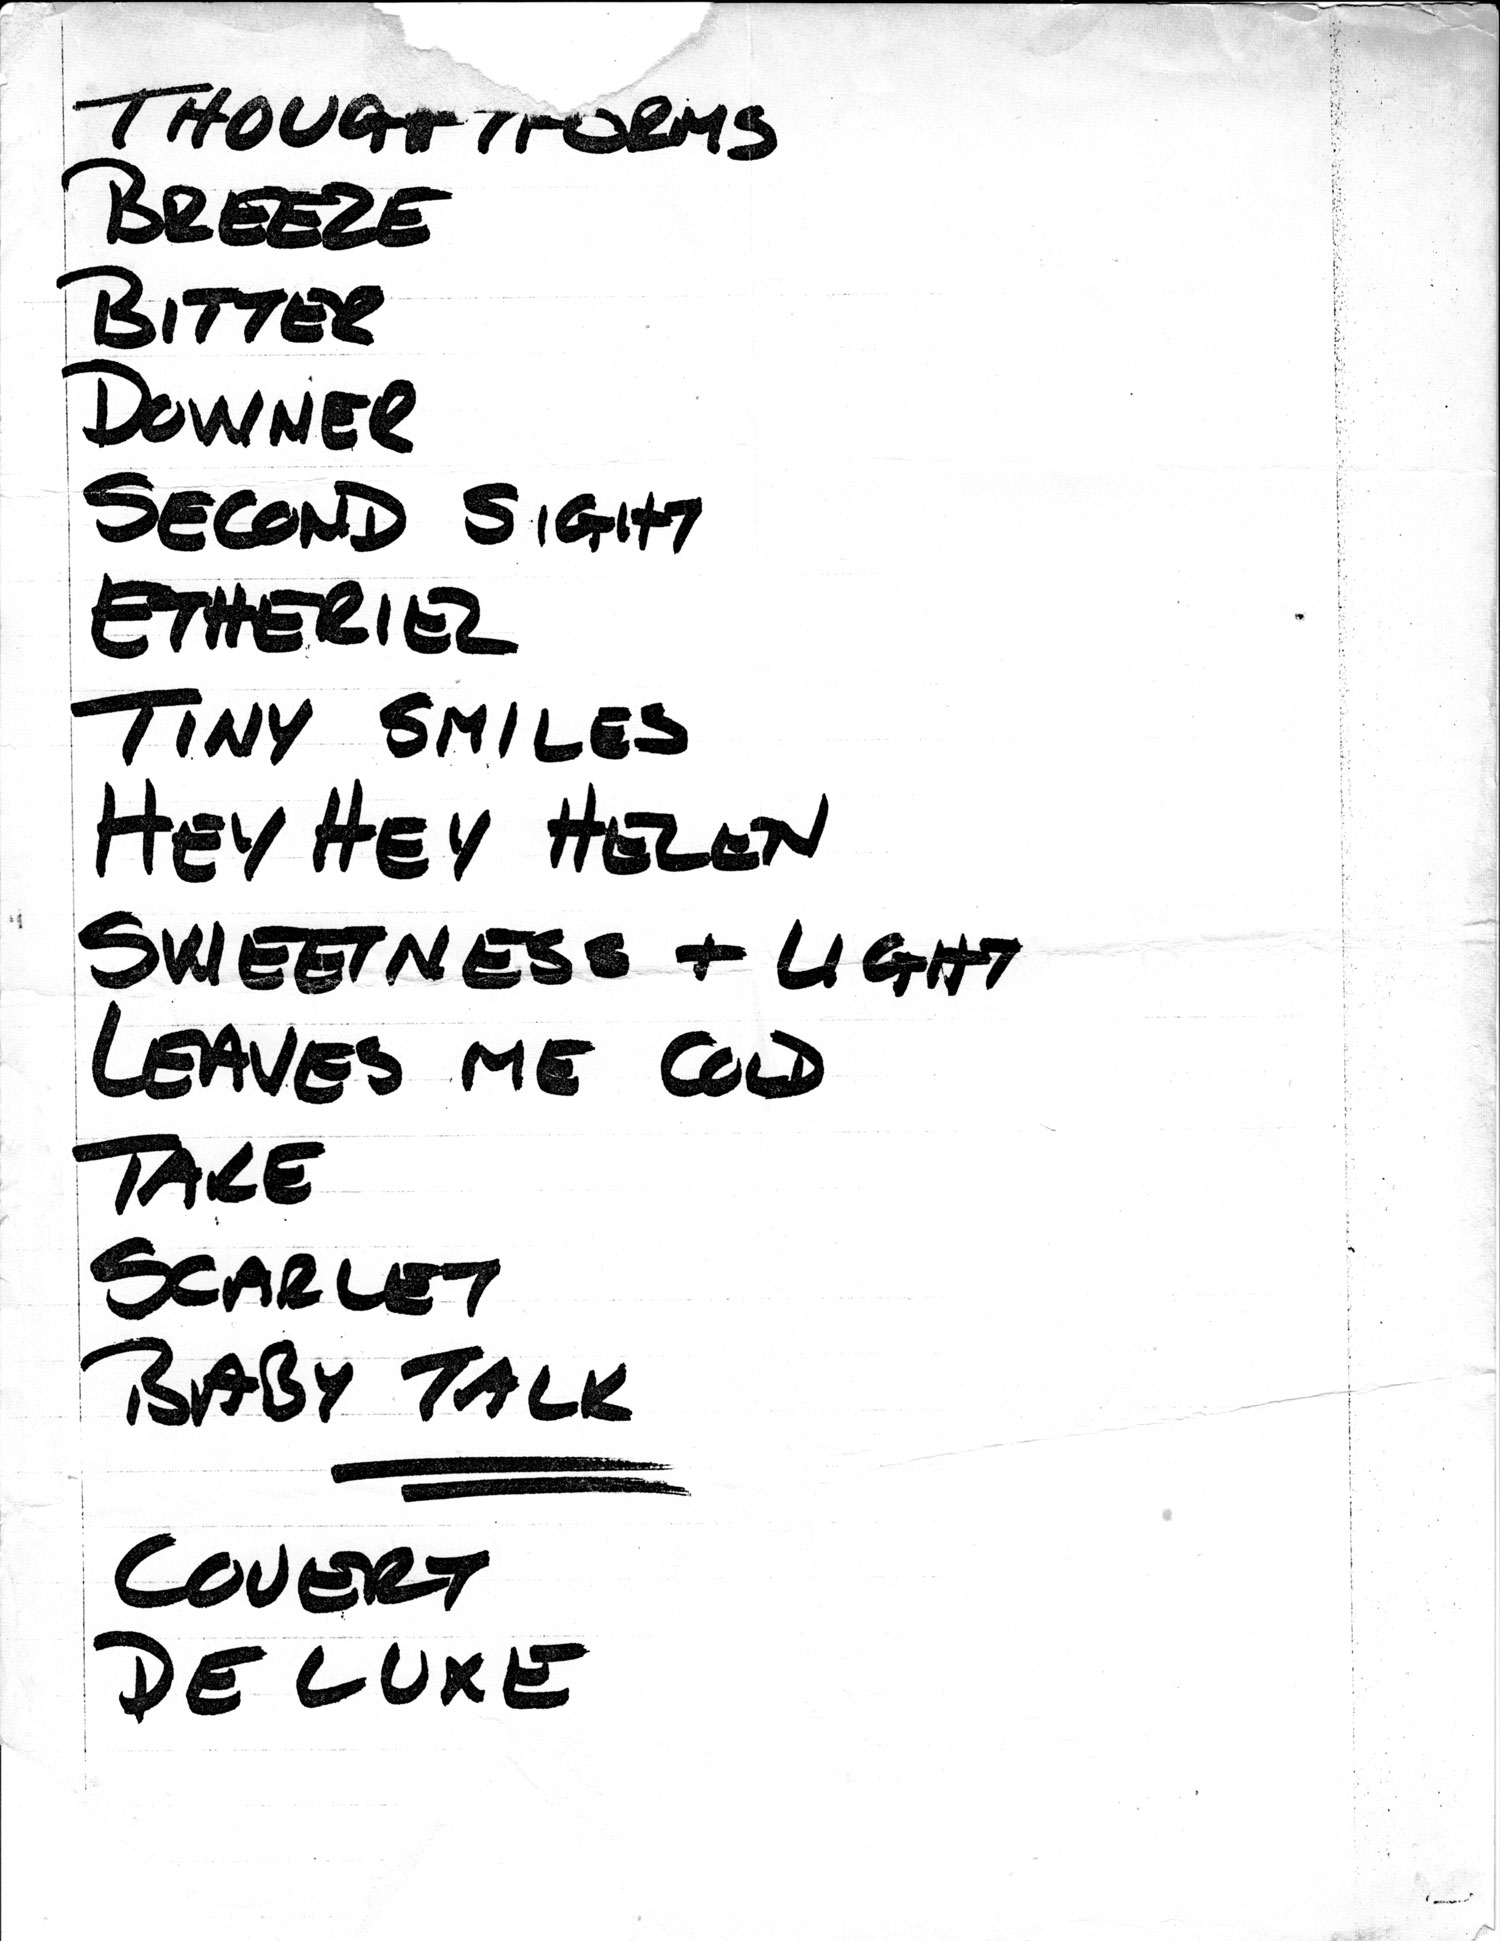 THOUGHTFORMS
BREEZE
BITTER
DOWNER
SECOND SIGHT
ETHERIEL
TINY SMILES
HEY HEY HELEN
SWEETNESS + LIGHT
LEAVES ME COLD
TAKE
SCARLET
BABY TALK
COVERT
DE LUXE